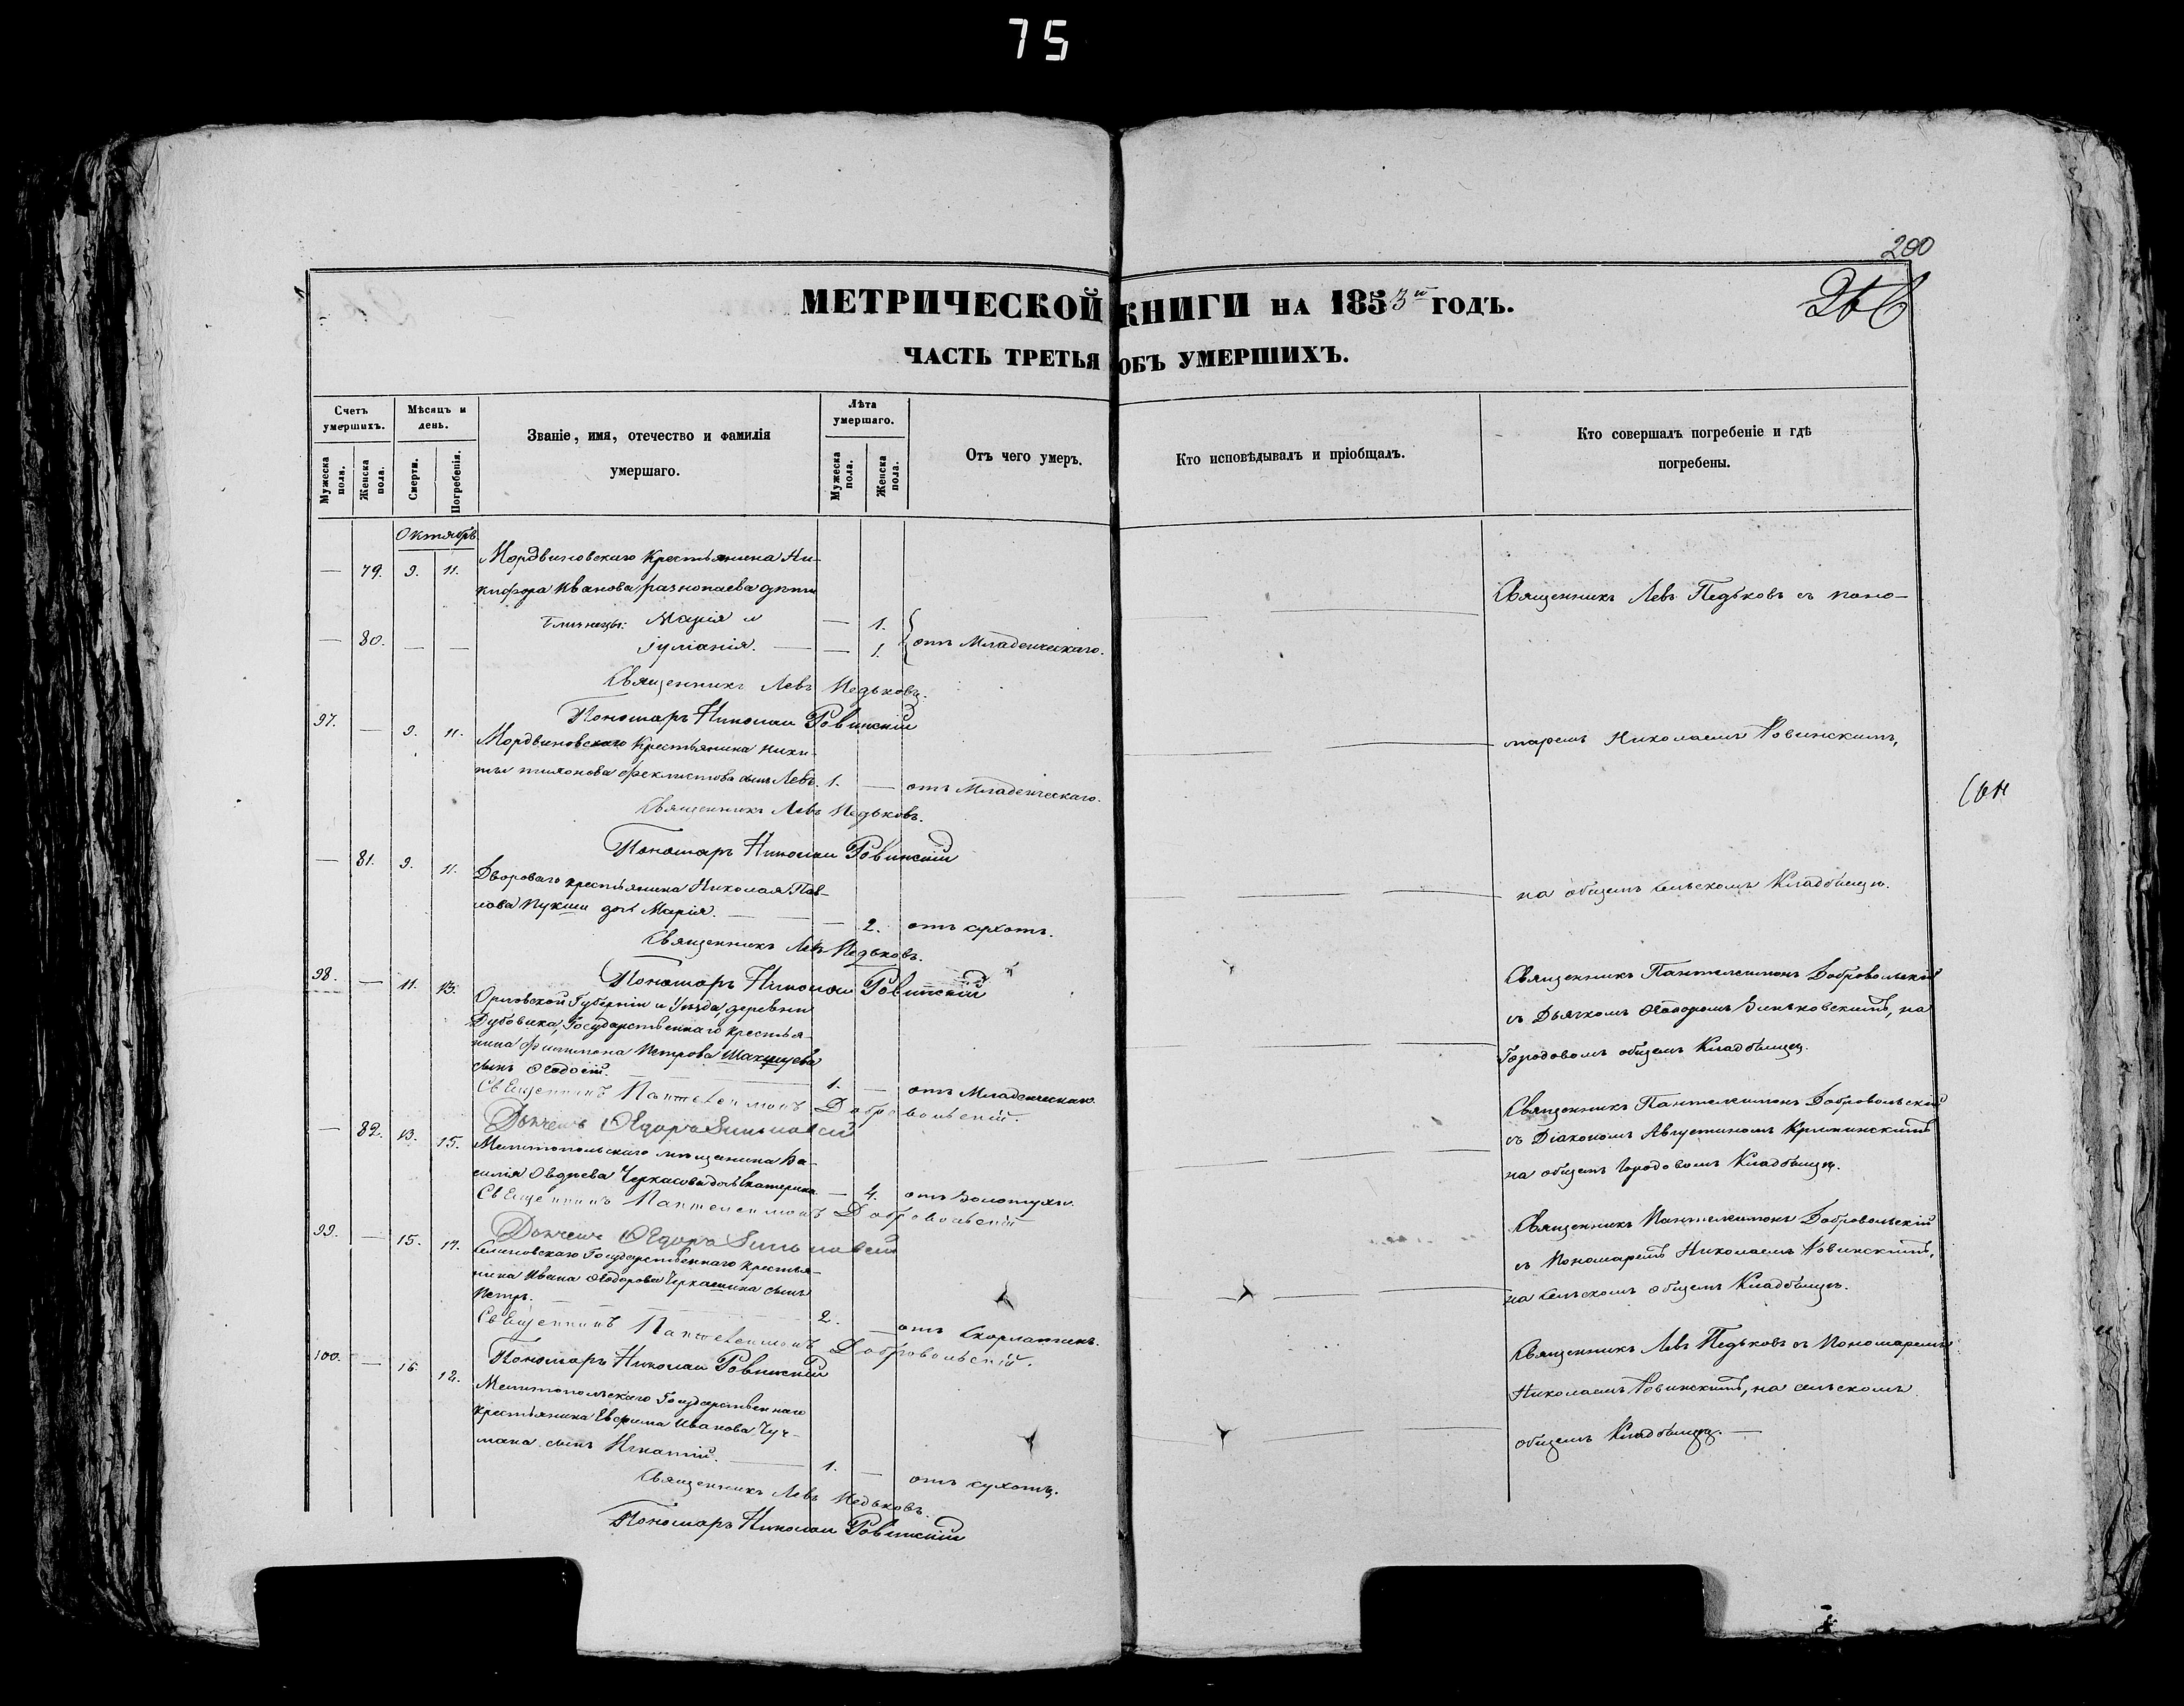 75
200
МЕТРИЧЕСКОЙ КНИГИ НА 1853й ГОДЪ.
ЧАСТЬ ТРЕТЬЯ ОБЪ УМЕРШИХЪ.
Счетъ умершихъ.
Мужеска пола.
Женска пола.
Мѣсяцъ и день.
Смерти.
Погребенія.
Званіе, имя, отечество и фамилія
умершаго.
Лѣта умершаго.
Мужеска пола.
Женска пола.
Отъ чего умеръ.
Кто исповѣдывалъ и пріобщалъ.
Кто совершалъ погребеніе и гдѣ
погребены.
Октябрь
— 79. 9. 11. Мордвиновскаго Крестьянина Ни-
кифора Иванова дѣти
близнецы: Марія и — 1.
— 80. — — Іуліанія. — — 1. отъ Младенческаго.
Священникъ Левъ Педьковъ.
Пономарь Николай Ровинскій
Священникъ Левъ Педьковъ съ поно-
97. — 9. 11. Мордвиновскаго Крестьянина Ники-
ты Феклистова сынъ Левъ. 1. — отъ Младенческаго.
Священникъ Левъ Педьковъ.
Пономарь Николай Ровинскій
маремъ Николаемъ Ровинскимъ,
— 81. 9. 11. Двороваго крестьянина Николая Пав-
лова дочь Марія. — — 2. отъ сухотъ.
Священникъ Левъ Педьковъ.
Пономарь Николай Ровинскій
на общемъ сельскомъ Кладбищѣ.
98. — 11. 13. Орловской Губерніи и Уѣзда, деревни
Дубовика, Государственнаго крестья-
нина Филимона Петрова
сынъ Ѳеодосій. — 1. — отъ Младенческаго.
Священникъ Пантелеимонъ Добровольскій.
Священникъ Пантелеимонъ Добровольскій
съ Дьячкомъ Ѳеодоромъ Зиньковскимъ, на
Городовомъ общемъ Кладбищѣ.
— 82. 13. 15. Мелитопольскаго мѣщанина Ва-
силія Овдѣева Черкасова дочь Екатерина — 4. отъ Золотухи.
Священникъ Пантелеимонъ Добровольскій
Священникъ Пантелеимонъ Добровольскій
съ Діакономъ Августиномъ
на общемъ Городовомъ Кладбищѣ.
99. — 15. 17. Государственнаго крестья-
нина Ивана Ѳеодорова сынъ
Петръ. — 2. — отъ Скорлатины.
Священникъ Пантелеимонъ Добровольскій.
Пономарь Николай Ровинскій
Священникъ Пантелеимонъ Добровольскій
съ Пономаремъ Николаемъ Ровинскимъ,
на Сельскомъ общемъ Кладбищѣ.
100. — 16. Мелитопольскаго Государственнаго
крестьянина Евфима Иванова Чуч-
мана сынъ Игнатій. — 1. — отъ сухотъ.
Священникъ Левъ Педьковъ.
Пономарь Николай Ровинскій
Священникъ Левъ Педьковъ съ Пономаремъ
Николаемъ Ровинскимъ, на сельскомъ
общемъ Кладбищѣ. —